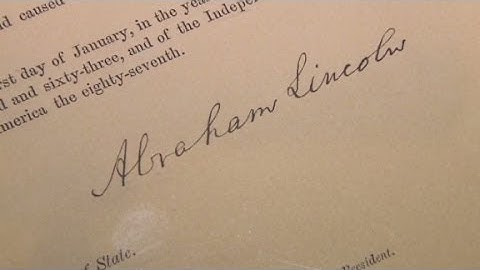 nd caused
rst day of January, in the yea
d and sixty-three, and of the Indepe
merica the eighty-seventh.
Abraham Lincoln
of State.
President.